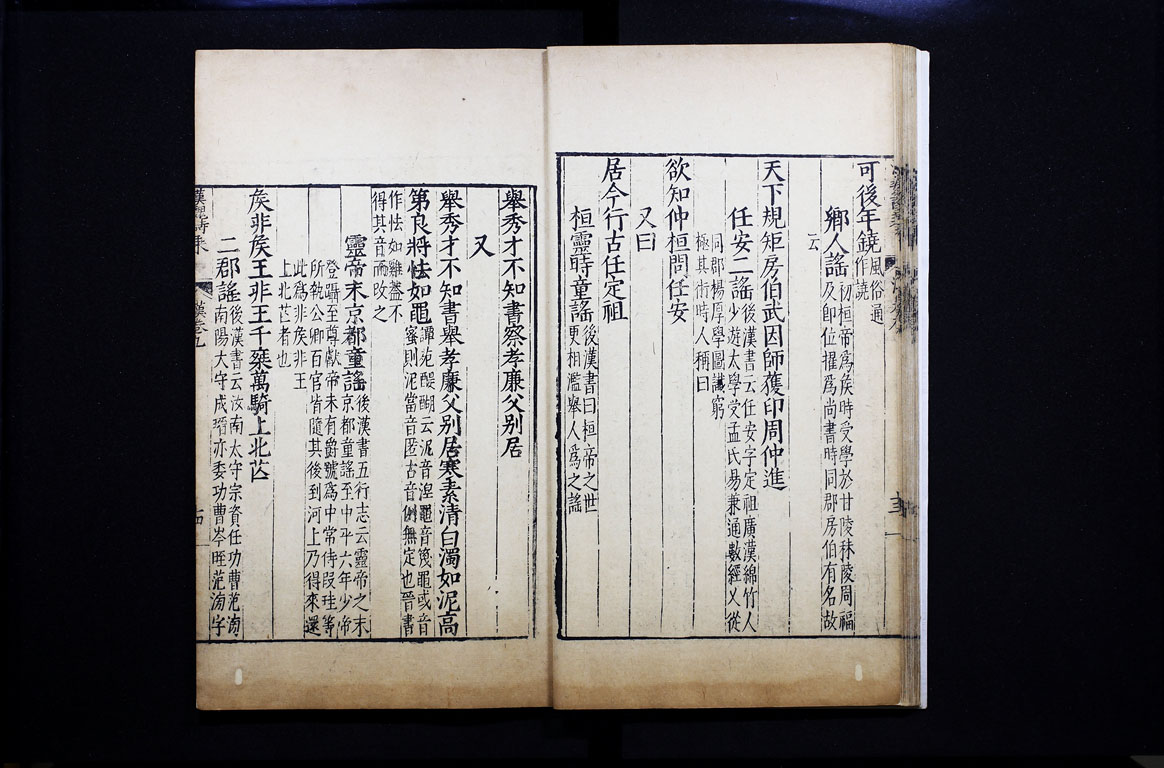 可後年鐃風俗通
作譊
鄉人謠初桓帝為矦時受學於甘陵秣陵周福
及即位擢為尚書時同郡房伯有名故
云
天下規矩房伯武因師獲印周仲進
任安二謠後漢書云任安字定祖廣漢綿竹人
少遊太學受孟氏易兼通數經又從
同郡楊厚學圖讖窮
極其術時人稱曰
欲知仲桓問任安
又曰
居今行古任定祖
桓靈時童謠後漢書曰桓帝之世
更相濫舉人為之謠
舉秀才不知書察孝廉父别居
又
舉秀才不知書舉孝廉父别居寒素清白濁如泥高
第良將怯如黽譚苑醍醐云泥音涅黽音篾黽或音
蜜則泥當音匿古音例無定也晉書
作怯如雞蓋不
得其音而改之
靈帝末京都童謠後漢書五行志云靈帝之末
京都童謠至中平六年少帝
登躡至尊獻帝未有爵號為中常侍段珪等
所執公卿百官皆隨其後到河上乃得來還
此為非矦非王
上北芒者也
矦非矦王非王千乘萬騎上北芒
二郡謠後漢書云汝南太守宗資任功曹范滂
南陽大守成瑨亦委功曹岑晊范滂字